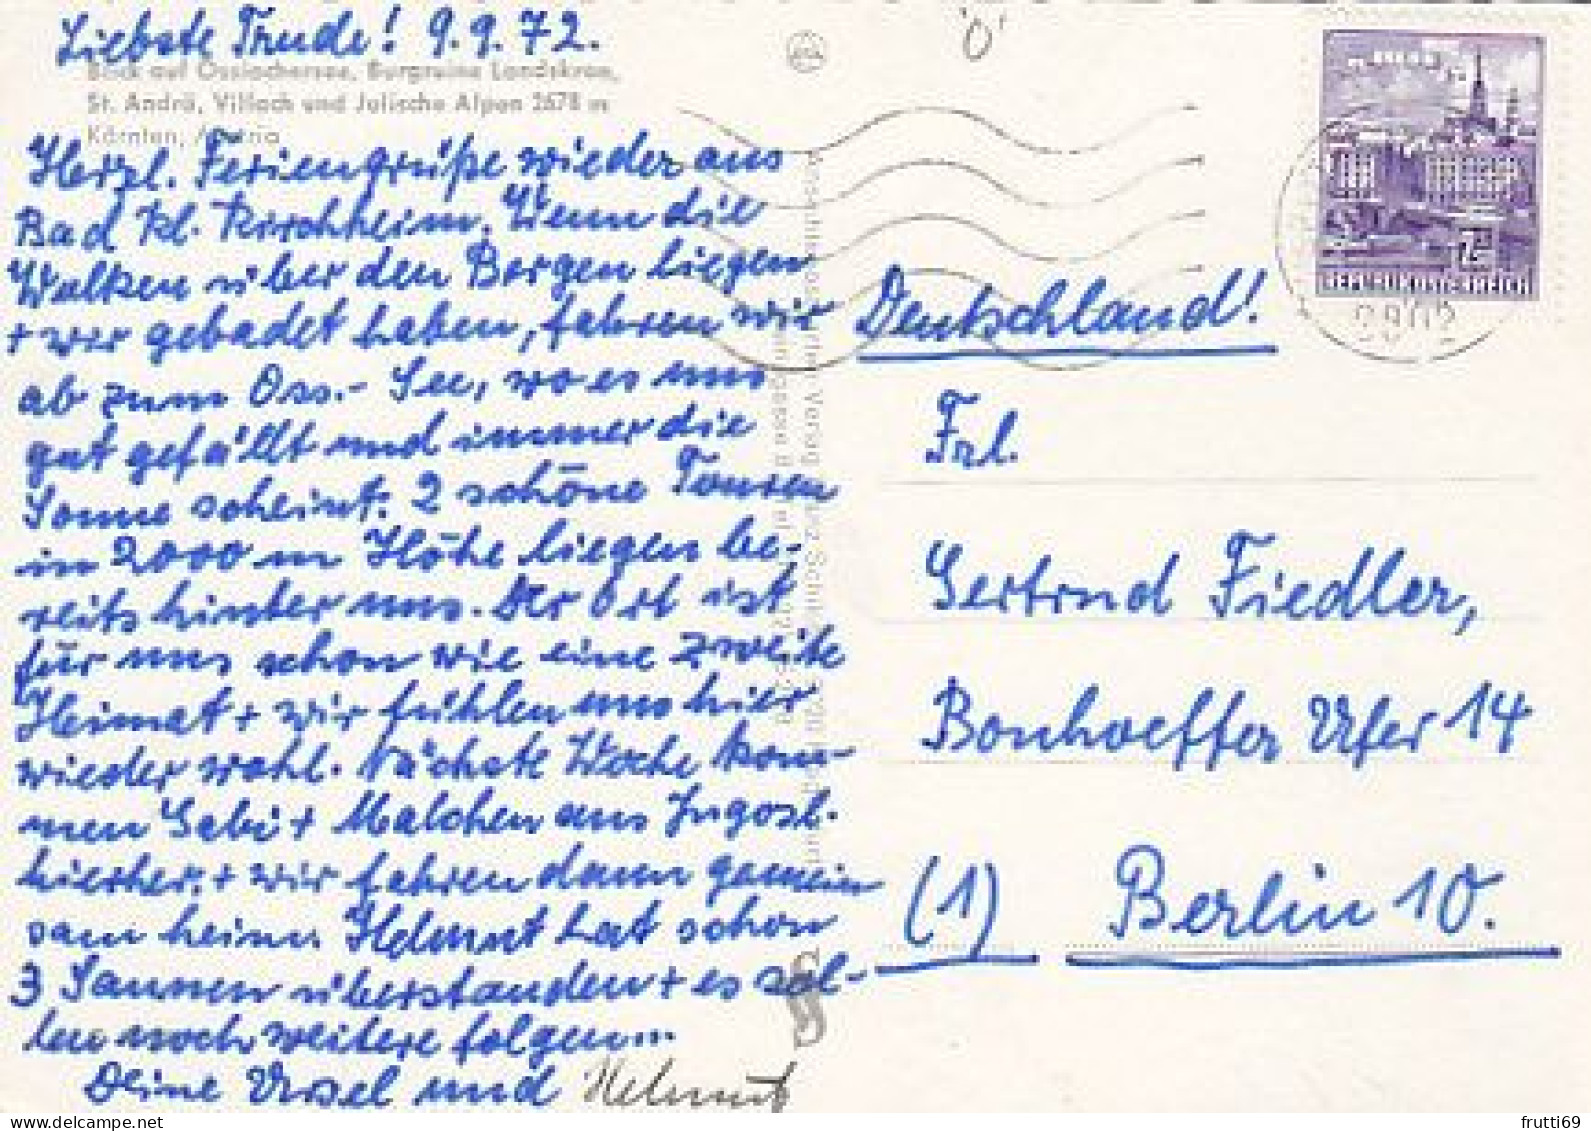 Liebste Trude! 9.9.72.
Blick auf Ossiachersee, Burgruine Landskron,
St. Andrä, Villach und Julische Alpen 2678 m
Kärnten, Austria
Herzl. Feriengrüße wieder aus
Bad Kl. Kirchheim. Wenn die
Wolken über den Bergen liegen
+ wir gebadet haben, fahren wir
ab zum Oss.-See, wo es uns
gut gefällt und immer die
Sonne scheint. 2 schöne Touren
in 2000 m Höhe liegen be-
reits hinter uns. Der Ort ist
für uns schon wie eine zweite
Heimat + wir fühlen uns hier
wieder wohl. Nächste Woche kom-
men Gabi + Malchen aus Jugosl.
hierher, + wir fahren dann gemein
sam heim. Helmut hat schon
3 Saunen überstanden + es sol-
len noch weitere folgen...
Deine Ursel und Helmut
'0'
REPUBLIK ÖSTERREICH
9802
Deutschland!
Frl.
Gertrud Fiedler,
Bonhoeffer Ufer 14
(1) Berlin 10.
www.delcampe.net
frutti69